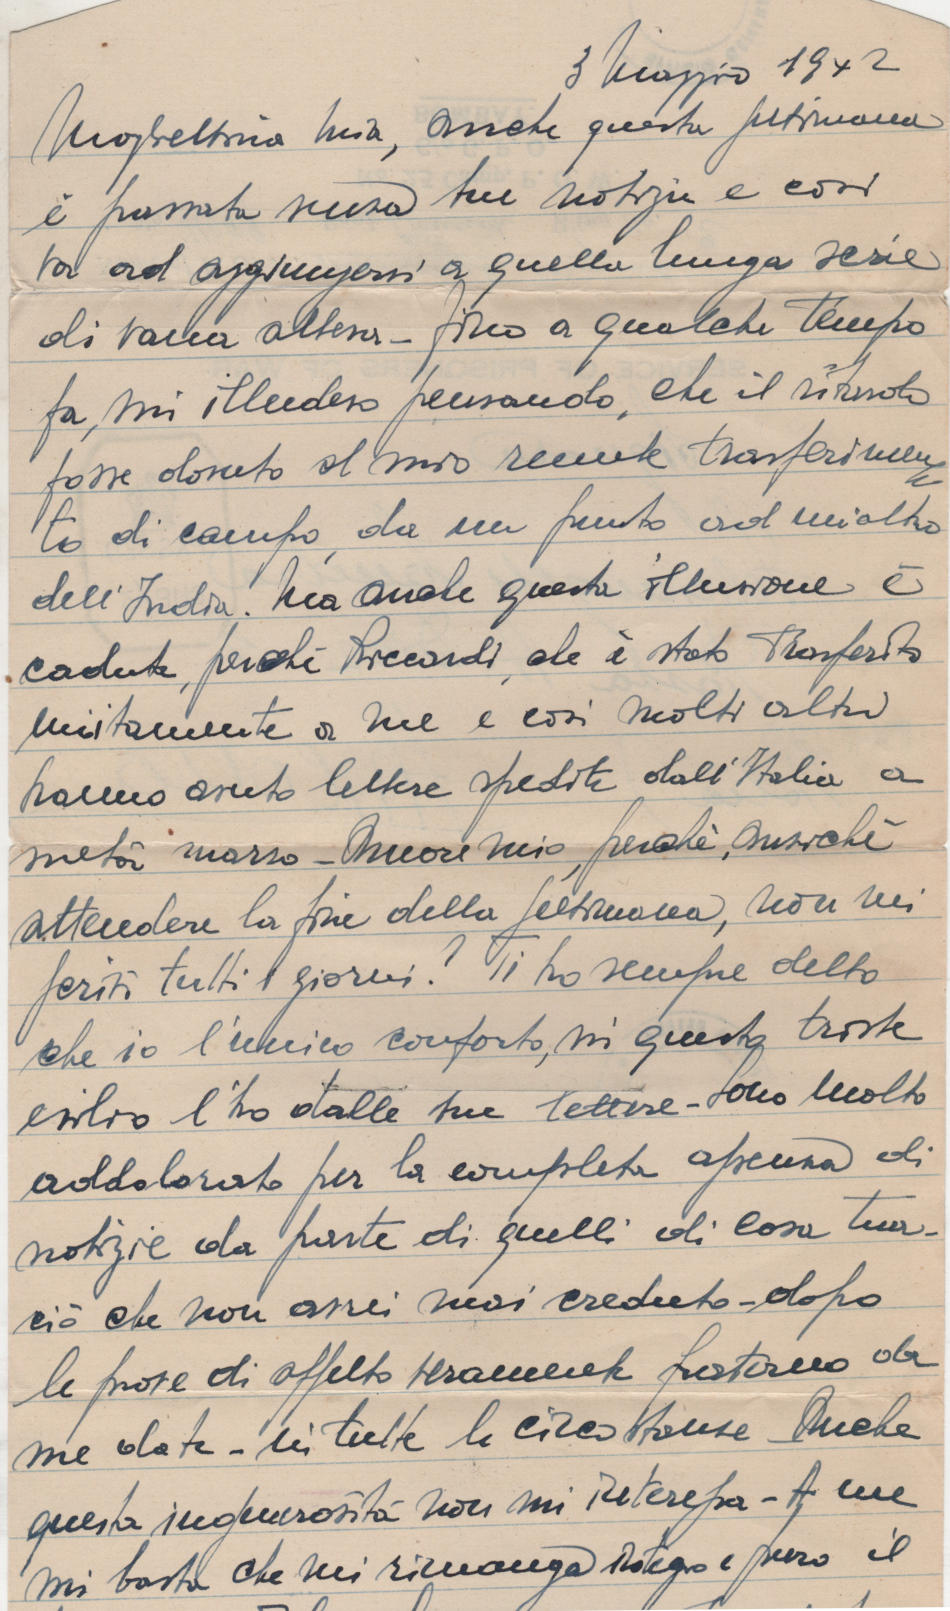 3 Maggio 1942
Mogliettina mia, anche questa settimana
è passata senza tue notizie e così
va ad aggiungersi a quella lunga serie
di vana attesa - fino a qualche tempo
fa, mi illudevo pensando, che il ritardo
fosse dovuto al mio recente trasferimen=
to di campo, da un punto ad un'altro
dell'India. Ma anche questa illusione è
caduta, perchè Riccardi, che è stato trasferito
unitamente a me e così molti altri
hanno avuto lettere spedite dall'Italia a
metà marzo - Amore mio, perchè, anzichè
attendere la fine della settimana, non mi
scrivi tutti i giorni? Ti ho sempre detto
che io l'unico conforto, in questo triste
esilio l'ho dalle tue lettere - Sono molto
addolorato per la completa assenza di
notizie da parte di quelli di casa tua -
ciò che non avrei mai creduto - dopo
le prove di affetto veramente fraterno da
me date - in tutte le circostanze - Anche
questa ingenerosità non mi interessa - A me
mi basta che mi rimanga integro e puro il
SERVICE OF PRISONERS OF WAR